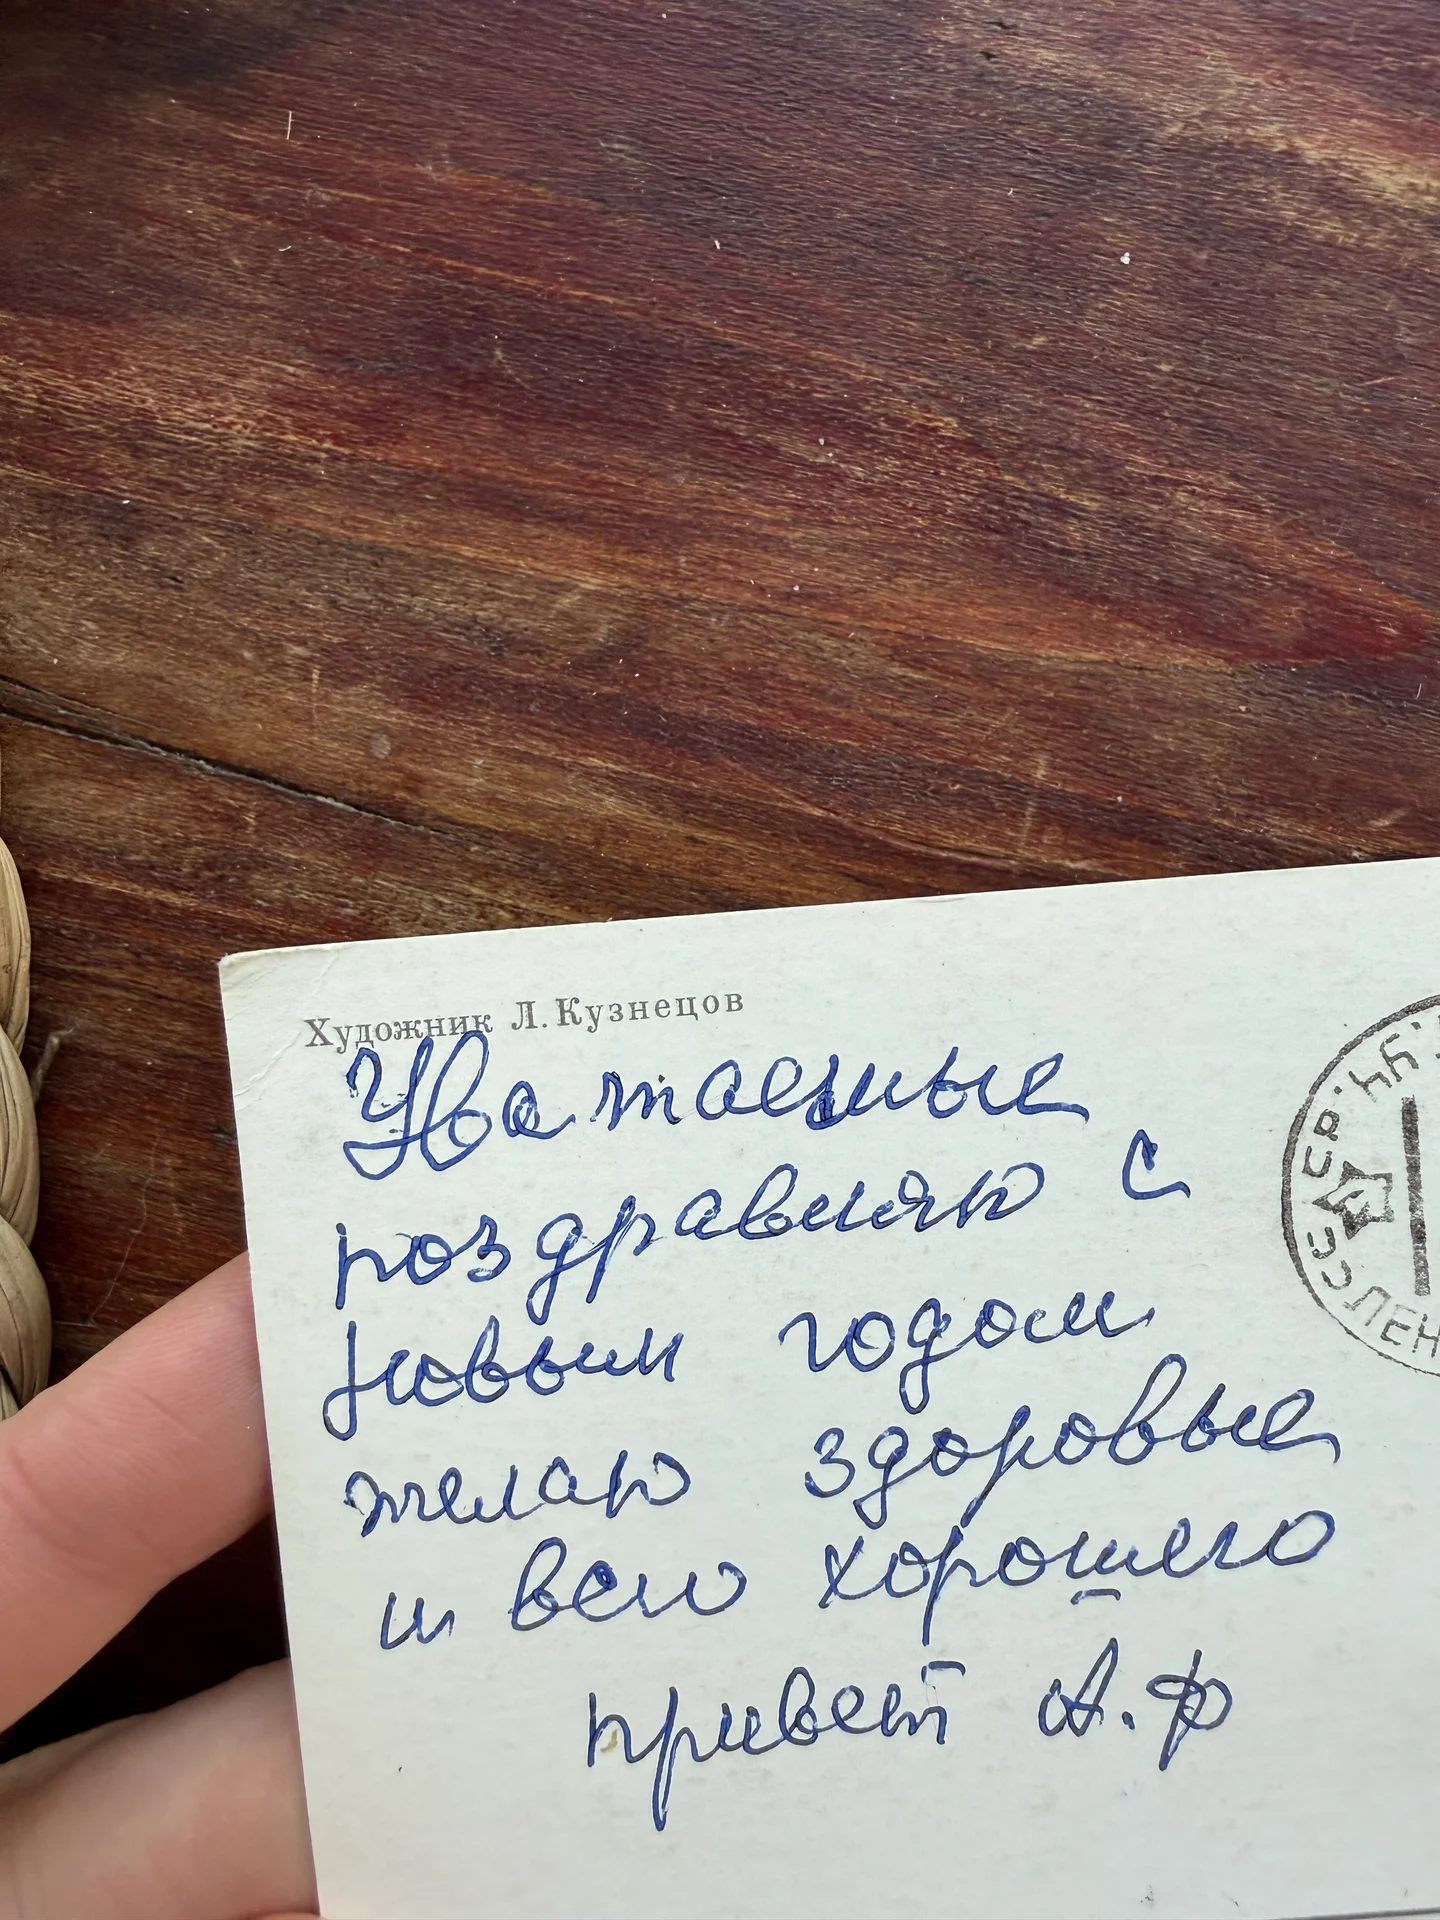 Художник Л. Кузнецов
Уважаемые
поздравляю с
Новым годом
желаю здоровье
и всго хорошего
привет А.Ф
СССР
ЛЕН